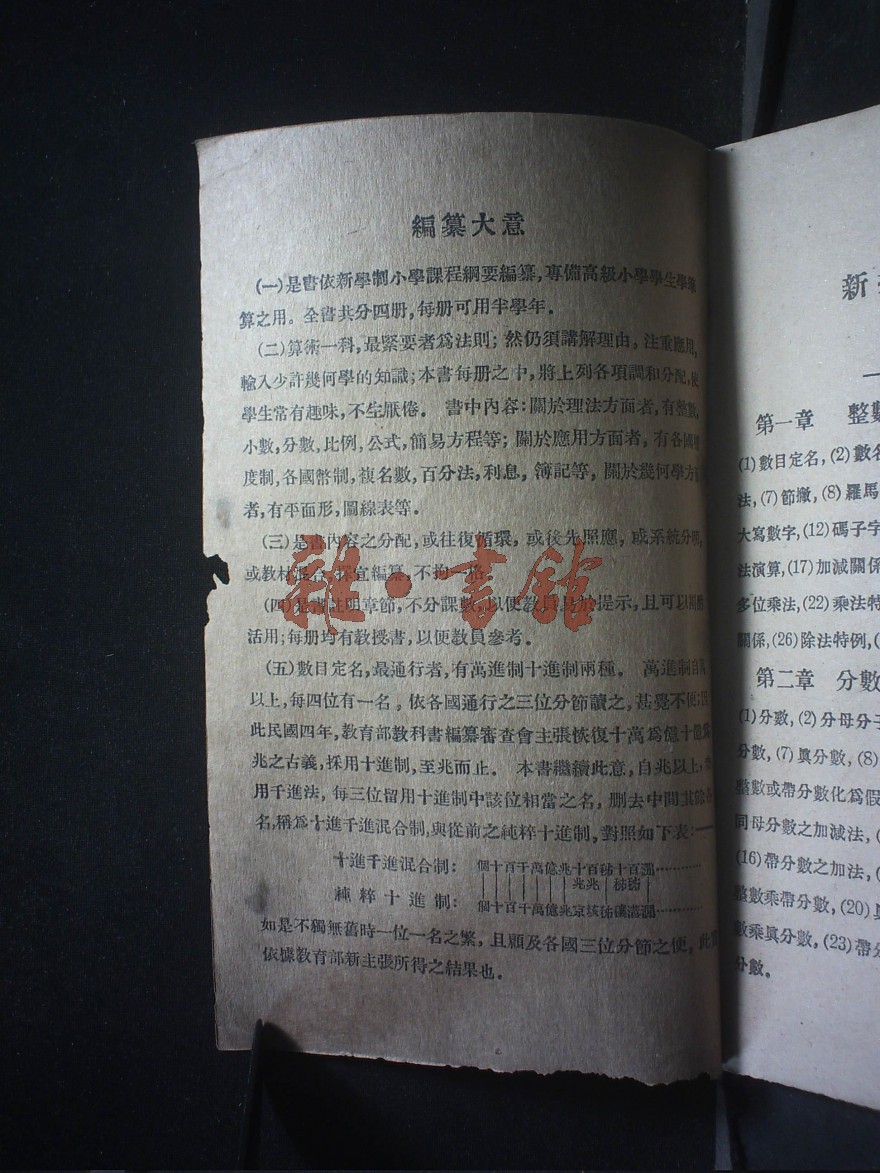 編纂大意
(一)是書依新學制小學課程綱要編纂,專備高級小學學生學
算之用。全書共分四册,每册可用半學年。
(二)算術一科,最緊要者爲法則;然仍須講解理由,注重應用,
輸入少許幾何學的知識;本書每册之中,將上列各項調和分配,使
學生常有趣味,不生厭倦。書中內容:關於理法方面者,有整數,
小數,分數,比例,公式,簡易方程等;關於應用方面者,有各國
度制,各國幣制,複名數,百分法,利息,簿記等,關於幾何學方
者,有平面形,圖線表等。
(三)是書內容之分配,或往復循環,或後先照應,或系統分明,
或教材混合,採宜編纂,不拘一格。
(四)是書註明章節,不分課數,以便教員易於提示,且可以
活用;每册均有教授書,以便教員參考。
(五)數目定名,最通行者,有萬進制十進制兩種。萬進制自
以上,每四位有一名。依各國通行之三位分節讀之,甚覺不便;因
此民國四年,教育部教科書編纂審查會主張恢復十萬爲億十億
兆之古義,採用十進制,至兆而止。本書繼續此意,自兆以上,
用千進法,每三位留用十進制中該位相當之名,删去中間其餘各
名,稱爲十進千進混合制,與從前之純粹十進制,對照如下表:——
十進千進混合制:個十百千萬億兆十百秭十百澗…………
兆兆秭秭
純粹十進制:個十百千萬億兆京垓秭穰溝澗…………
如是不獨無舊時一位一名之繁,且顧及各國三位分節之便,此
依據教育部新主張所得之結果也。
新
第一章 整數
(1)數目定名,(2)數名
法,(7)節撇,(8)羅馬
大寫數字,(12)碼子字
法演算,(17)加減關係
多位乘法,(22)乘法特
關係,(26)除法特例,(
第二章 分數
(1)分數,(2)分母分子
分數,(7)眞分數,(8)
整數或帶分數化爲假
同母分數之加減法,(
(16)帶分數之加法,(
整數乘帶分數,(20)眞
數乘眞分數,(23)帶分
分數。
雜·書館